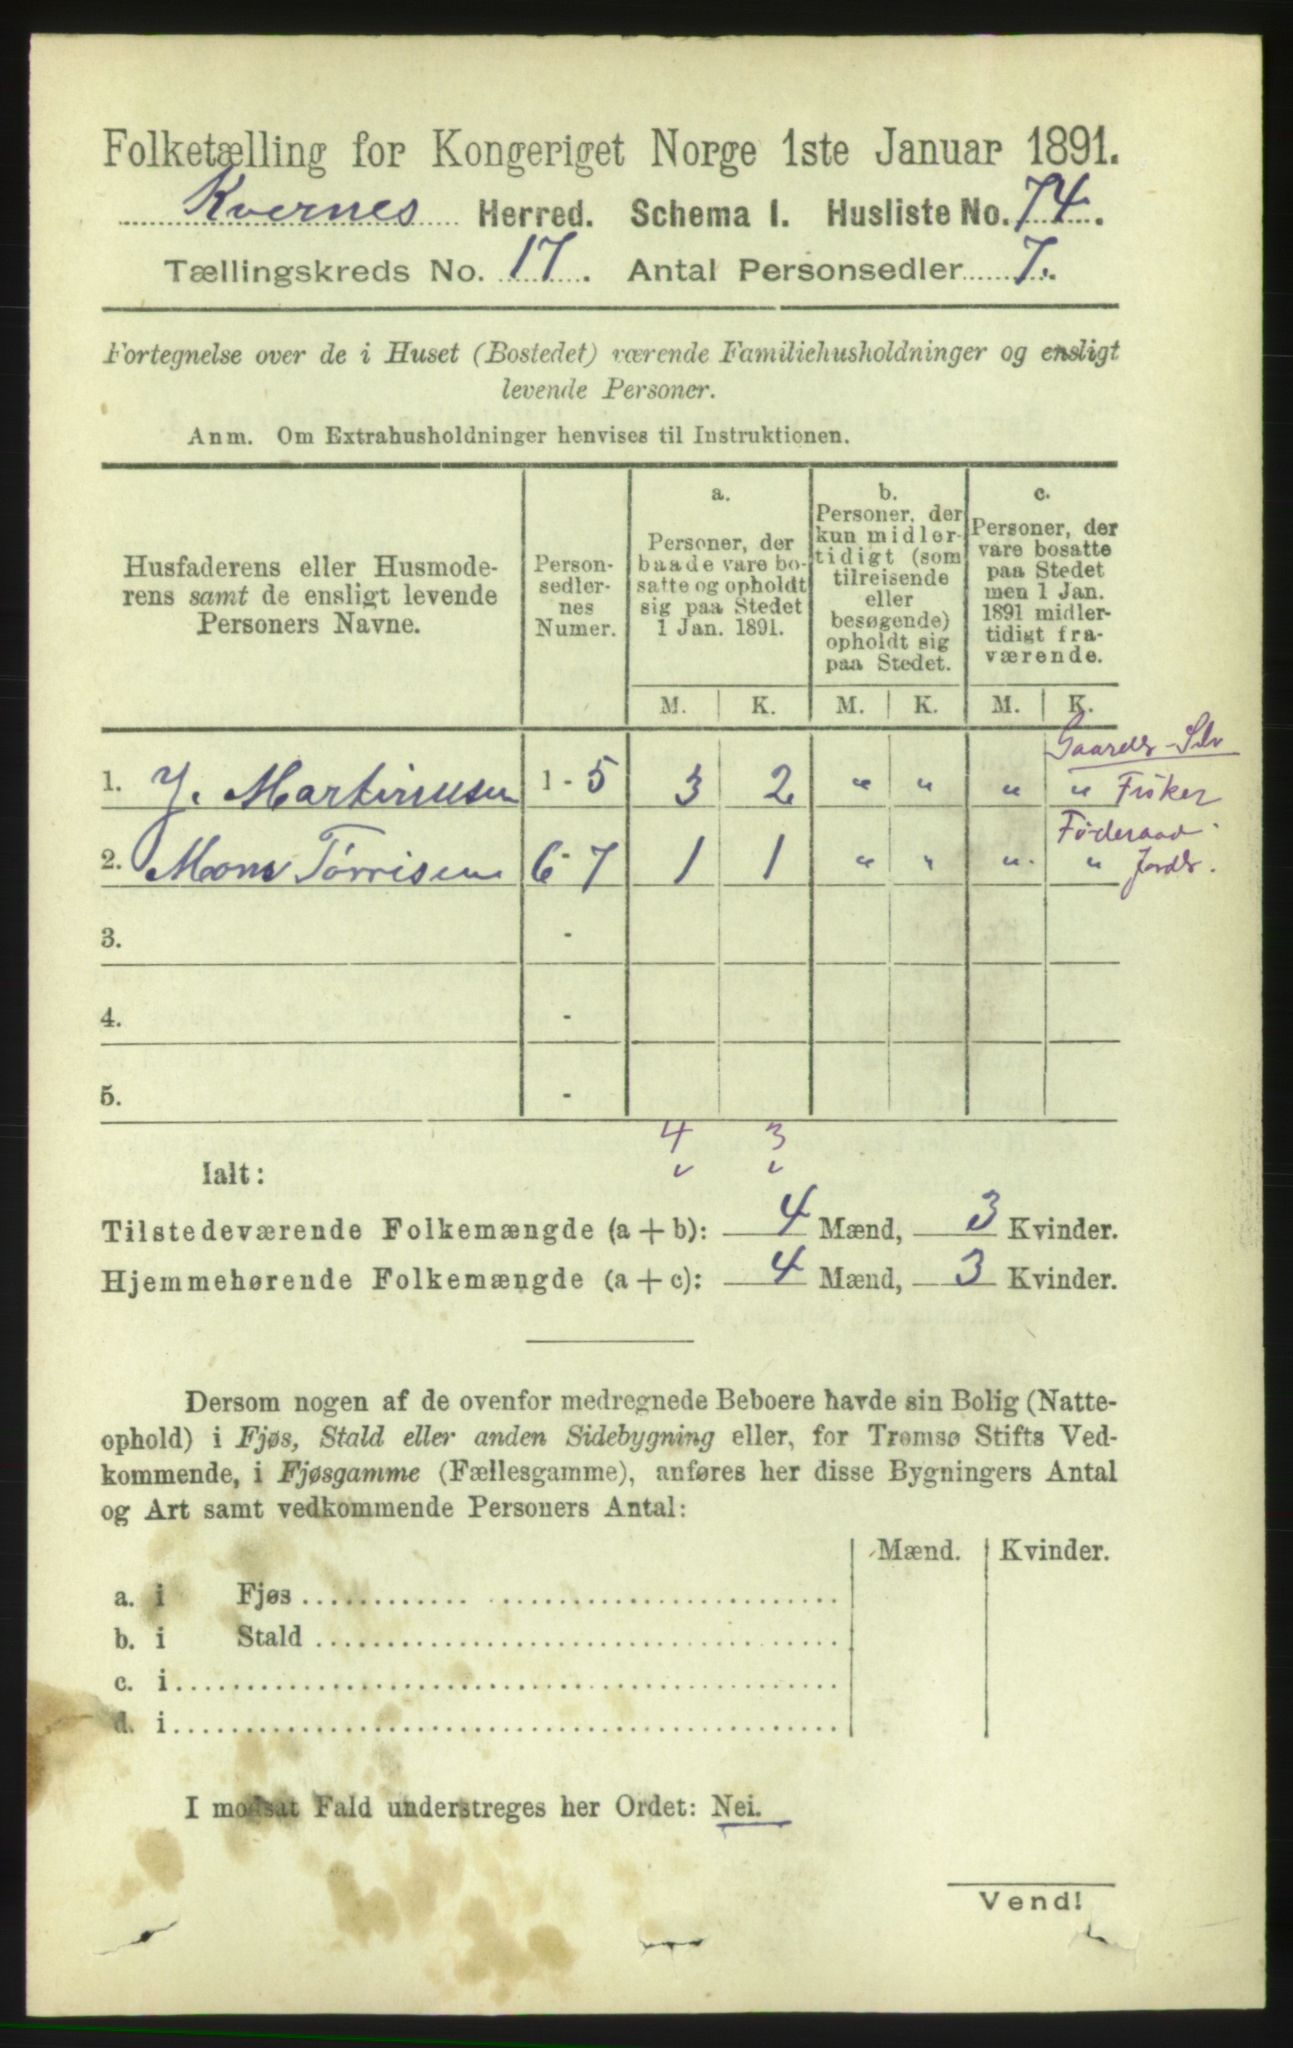 Folketælling for Kongeriget Norge 1ste Januar 1891.
Kvernes Herred. Schema I. Husliste No. 74.
Tællingskreds No. 17. Antal Personsedler 7.
Fortegnelse over de i Huset (Bostedet) værende Familiehusholdninger og ensligt
levende Personer.
Anm. Om Extrahusholdninger henvises til Instruktionen.
Husfaderens eller Husmode-
rens samt de ensligt levende
Personers Navne.
Person-
sedler-
nes
Numer.
a.
Personer, der
baade vare bo-
satte og opholdt
sig paa Stedet
1 Jan. 1891.
b.
Personer, der
kun midler-
tidigt (som
tilreisende
eller
besøgende)
opholdt sig
paa Stedet.
c.
Personer, der
vare bosatte
paa Stedet
men 1 Jan.
1891 midler-
tidigt fra-
værende.
M. K. M. K. M. K.
Gaardbr - Selv
1. J. Martinusen 1 - 5 3 2 " " " " Fisker
Føderaad
2. Mons Tørrisen 6 - 7 1 1 " " " " Jordbr.
3. -
4. -
5. -
4 3
Ialt:
Tilstedeværende Folkemængde (a + b): 4 Mænd, 3 Kvinder.
Hjemmehørende Folkemængde (a + c): 4 Mænd, 3 Kvinder.
Dersom nogen af de ovenfor medregnede Beboere havde sin Bolig (Natte-
ophold) i Fjøs, Stald eller anden Sidebygning eller, for Tromsø Stifts Ved-
kommende, i Fjøsgamme (Fællesgamme), anføres her disse Bygningers Antal
og Art samt vedkommende Personers Antal:
Mænd. Kvinder.
a. i Fjøs
b. i Stald
c. i
d. i
I modsat Fald understreges her Ordet: Nei.
Vend!